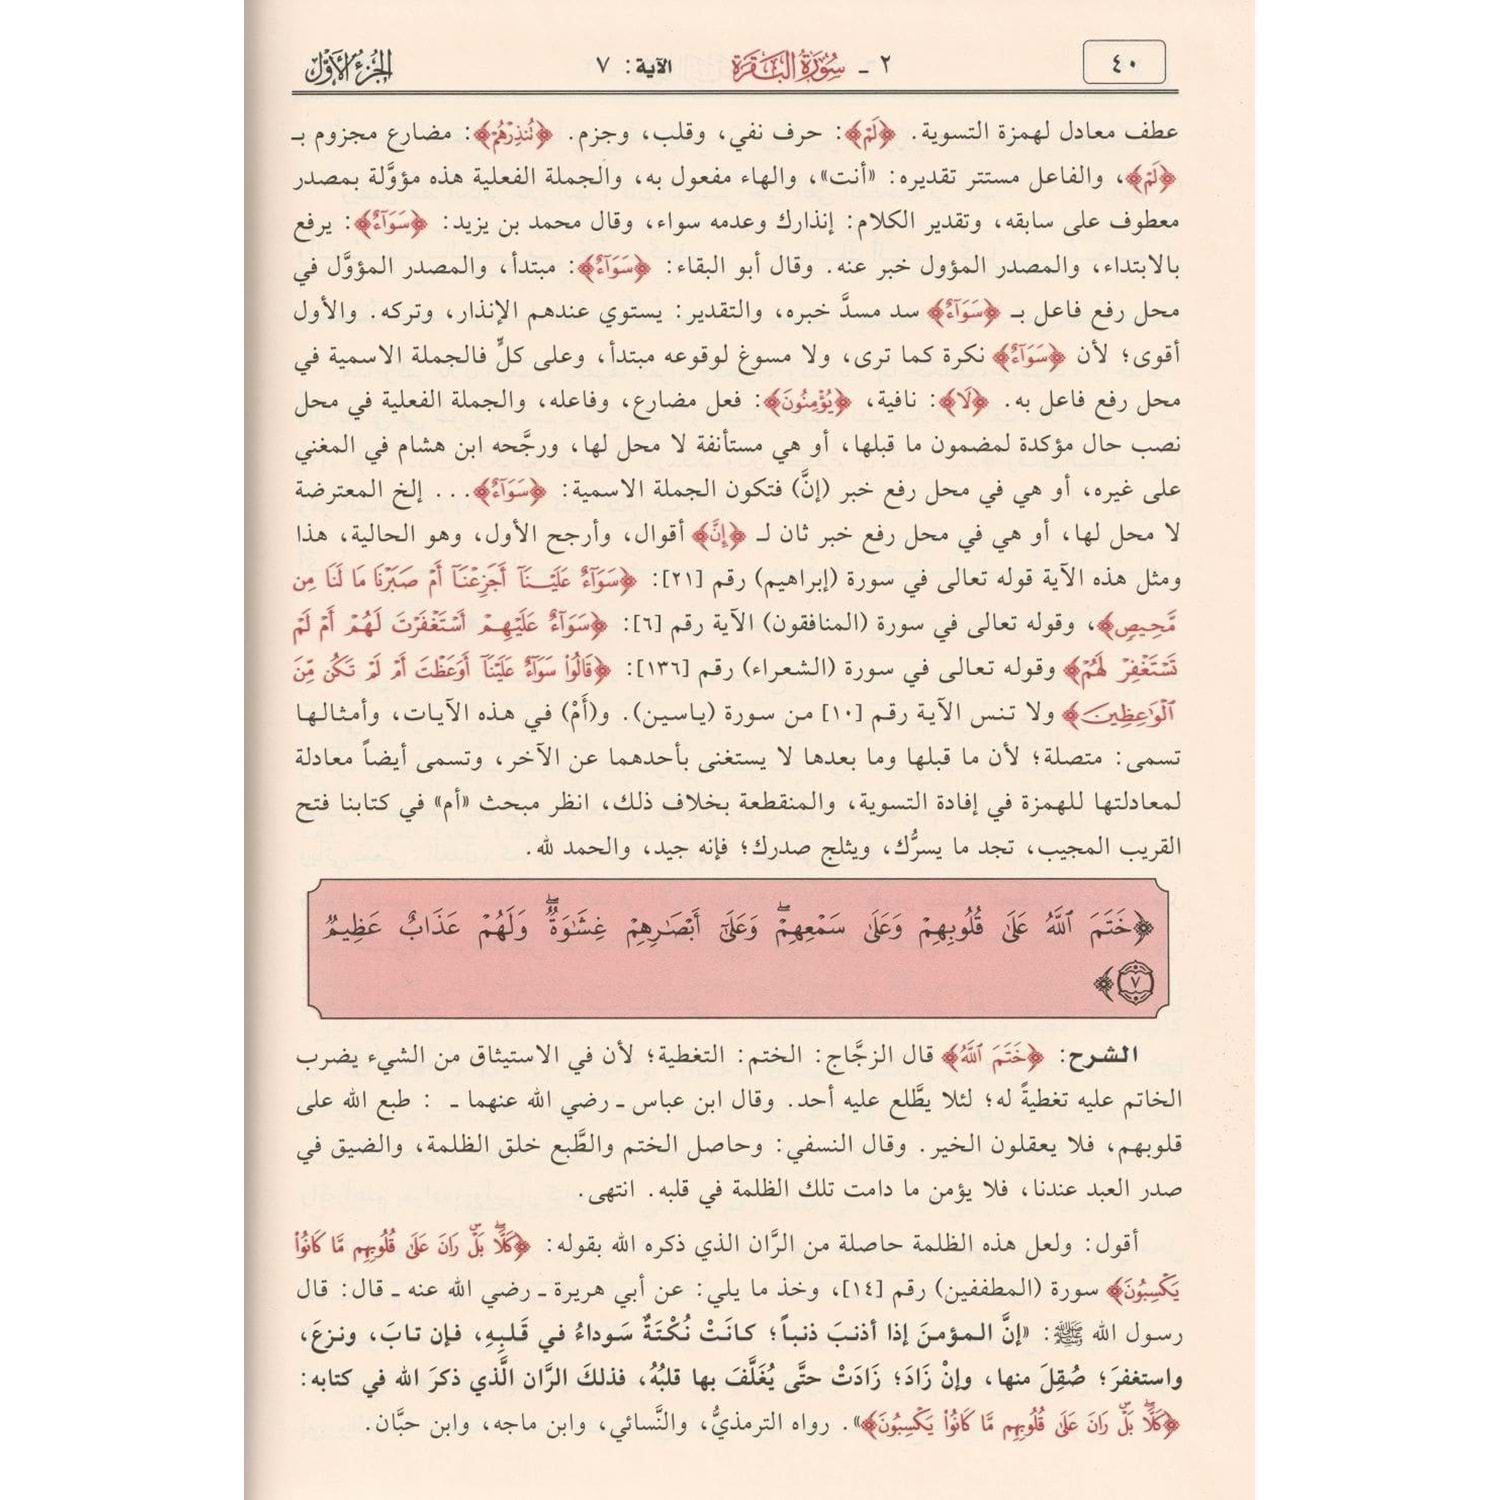 ٤٠
٢ ـ سُورَةُ البَقَرَةِ
الآية: ٧
الجزء الأول
عطف معادل لهمزة التسوية. ﴿لَمْ﴾: حرف نفي، وقلب، وجزم. ﴿نُنذِرْهُمْ﴾: مضارع مجزوم بـ
﴿لَمْ﴾، والفاعل مستتر تقديره: «أنت»، والهاء مفعول به، والجملة الفعلية هذه مؤوَّلة بمصدر
معطوف على سابقه، وتقدير الكلام: إنذارك وعدمه سواء، وقال محمد بن يزيد: ﴿سَوَآءٌ﴾: يرفع
بالابتداء، والمصدر المؤول خبر عنه. وقال أبو البقاء: ﴿سَوَآءٌ﴾: مبتدأ، والمصدر المؤوَّل في
محل رفع فاعل بـ ﴿سَوَآءٌ﴾ سد مسدَّ خبره، والتقدير: يستوي عندهم الإنذار، وتركه. والأول
أقوى؛ لأن ﴿سَوَآءٌ﴾ نكرة كما ترى، ولا مسوغ لوقوعه مبتدأ، وعلى كلٍّ فالجملة الاسمية في
محل رفع فاعل به. ﴿لَا﴾: نافية، ﴿يُؤْمِنُونَ﴾: فعل مضارع، وفاعله، والجملة الفعلية في محل
نصب حال مؤكدة لمضمون ما قبلها، أو هي مستأنفة لا محل لها، ورجَّحه ابن هشام في المغني
على غيره، أو هي في محل رفع خبر (إنَّ) فتكون الجملة الاسمية: ﴿سَوَآءٌ﴾... إلخ المعترضة
لا محل لها، أو هي في محل رفع خبر ثان لـ ﴿إِنَّ﴾ أقوال، وأرجح الأول، وهو الحالية، هذا
ومثل هذه الآية قوله تعالى في سورة (إبراهيم) رقم [٢١]: ﴿سَوَآءٌ عَلَيْنَآ أَجَزِعْنَآ أَمْ صَبَرْنَا مَا لَنَا مِن
مَّحِيصٍ﴾، وقوله تعالى في سورة (المنافقون) الآية رقم [٦]: ﴿سَوَآءٌ عَلَيْهِمْ أَسْتَغْفَرْتَ لَهُمْ أَمْ لَمْ
تَسْتَغْفِرْ لَهُمْ﴾ وقوله تعالى في سورة (الشعراء) رقم [١٣٦]: ﴿قَالُوا۟ سَوَآءٌ عَلَيْنَآ أَوَعَظْتَ أَمْ لَمْ تَكُن مِّنَ
ٱلْوَٰعِظِينَ﴾ ولا تنس الآية رقم [١٠] من سورة (ياسين). و(أَمْ) في هذه الآيات، وأمثالها
تسمى: متصلة؛ لأن ما قبلها وما بعدها لا يستغنى بأحدهما عن الآخر، وتسمى أيضاً معادلة
لمعادلتها للهمزة في إفادة التسوية، والمنقطعة بخلاف ذلك، انظر مبحث «أم» في كتابنا فتح
القريب المجيب، تجد ما يسرُّك، ويثلج صدرك؛ فإنه جيد، والحمد لله.
﴿خَتَمَ ٱللَّهُ عَلَىٰ قُلُوبِهِمْ وَعَلَىٰ سَمْعِهِمْ ۖ وَعَلَىٰٓ أَبْصَٰرِهِمْ غِشَٰوَةٌ ۖ وَلَهُمْ عَذَابٌ عَظِيمٌ
٧﴾
الشرح: ﴿خَتَمَ ٱللَّهُ﴾ قال الزجَّاج: الختم: التغطية؛ لأن في الاستيثاق من الشيء يضرب
الخاتم عليه تغطيةً له؛ لئلا يطَّلع عليه أحد. وقال ابن عباس ـ رضي الله عنهما ـ : طبع الله على
قلوبهم، فلا يعقلون الخير. وقال النسفي: وحاصل الختم والطَّبع خلق الظلمة، والضيق في
صدر العبد عندنا، فلا يؤمن ما دامت تلك الظلمة في قلبه. انتهى.
أقول: ولعل هذه الظلمة حاصلة من الرَّان الذي ذكره الله بقوله: ﴿كَلَّا ۖ بَلْ ۜ رَانَ عَلَىٰ قُلُوبِهِم مَّا كَانُوا۟
يَكْسِبُونَ﴾ سورة (المطففين) رقم [١٤]، وخذ ما يلي: عن أبي هريرة ـ رضي الله عنه ـ قال: قال
رسول الله ﷺ: «إنَّ المؤمنَ إذا أذنبَ ذنباً؛ كانَتْ نُكْتَةٌ سَوداءُ في قَلبِهِ، فإن تابَ، ونزعَ،
واستغفرَ؛ صُقِلَ منها، وإنْ زَادَ؛ زَادَتْ حتَّى يُغَلَّفَ بها قلبُهُ، فذلكَ الرَّان الَّذي ذكرَ الله في كتابه:
﴿كَلَّا ۖ بَلْ ۜ رَانَ عَلَىٰ قُلُوبِهِم مَّا كَانُوا۟ يَكْسِبُونَ﴾». رواه الترمذيُّ، والنَّسائي، وابن ماجه، وابن حبَّان.